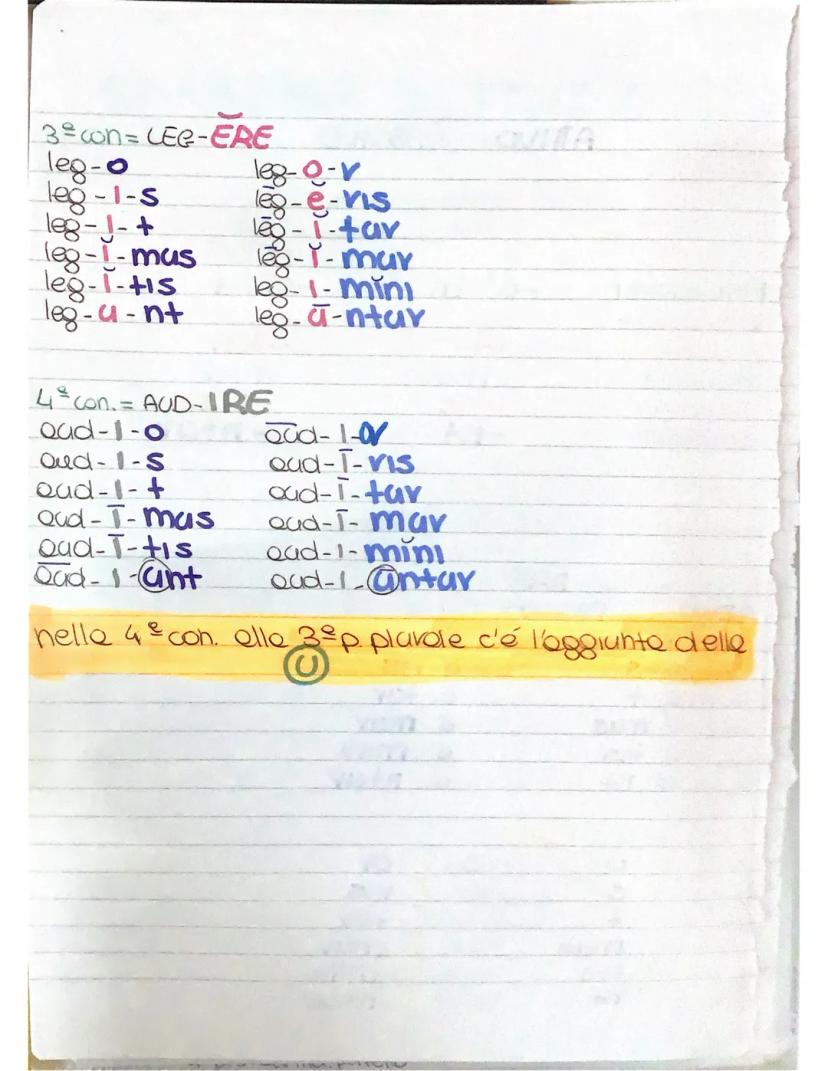 3ª con = LEG-ĔRE
leg-o leg-o-r
leg-i-s leg-ĕ-ris
leg-i-t leg-ĭ-tur
leg-ĭ-mus leg-ĭ-mur
leg-ĭ-tis leg-i-mĭni
leg-u-nt leg-ū-ntur
4ª con. = AUD-IRE
aud-i-o aud-i-or
aud-i-s aud-ī-ris
aud-i-t aud-ī-tur
aud-ī-mus aud-ī-mur
aud-ī-tis aud-i-mĭni
aud-i-unt aud-i-untur
nella 4ª con. alla 3ª p. plurale c'é l'aggiunta della
U